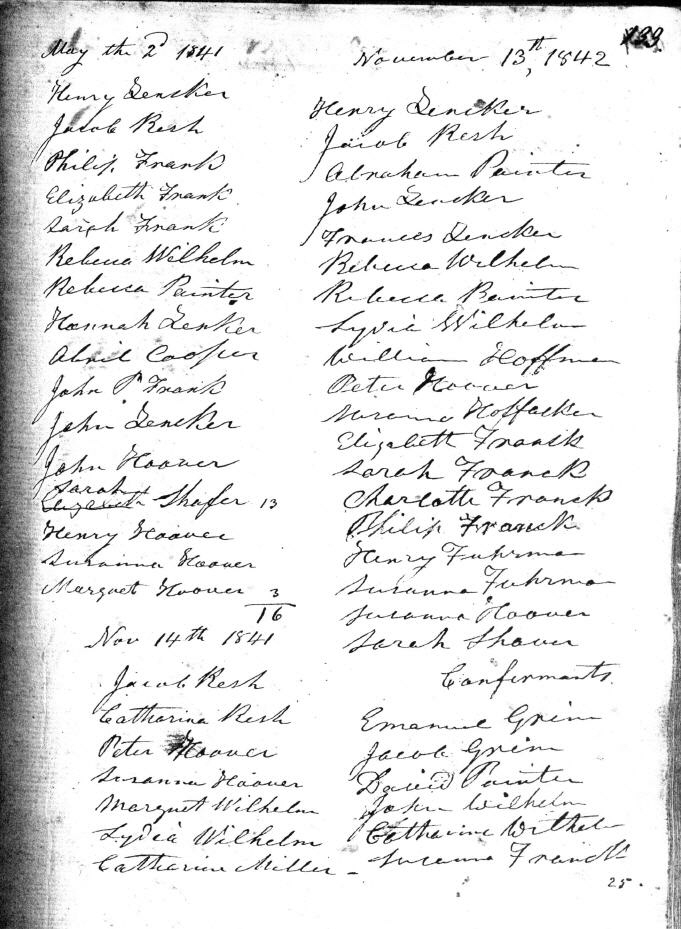 133
May the 2d 1841
Henry Zencker
Jacob Resh
Philip Frank
Elizabeth Frank
Sarah Frank
Rebecca Wilhelm
Rebecca Painter
Hannah Zenker
Abril Cooper
John P Frank
John Zencker
John Hoover
Sarah
Elizabeth Shafer 13
Henry Hoover
Susanna Hoover
Marguet Hoover 3
16
Nov 14th 1841
Jacob Resh
Catharina Resh
Peter Hoover
Susanna Hoover
Marguet Wilhelm
Lydia Wilhelm
Catharine Miller
November 13th, 1842
Henry Zencker
Jacob Resh
Abraham Painter
John Zencker
Frances Zencker
Rebecca Wilhelm
Rebecca Painter
Lydia Wilhelm
William Hoffman
Peter Hoover
Susanna Hoffacker
Elizabeth Franck
Sarah Franck
Charlotte Franck
Philip Franck
Henry Fuhrman
Susanna Fuhrman
Susanna Hoover
Sarah Shaver
Confirmants
Emanuel Grim
Jacob Grim
David Painter
John Wilhelm
Catharine Wilhelm
Susanna Franck
25.